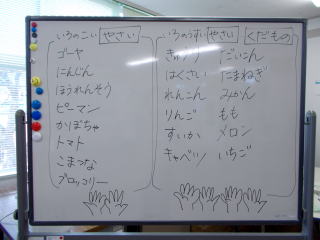 いろのこい やさい
ゴーヤ
にんじん
ほうれんそう
ピーマン
かぼちゃ
トマト
こまつな
ブロッコリー
いろのうすい やさい くだもの
きゅうり だいこん
はくさい たまねぎ
れんこん みかん
りんご もも
すいか メロン
キャベツ いちご